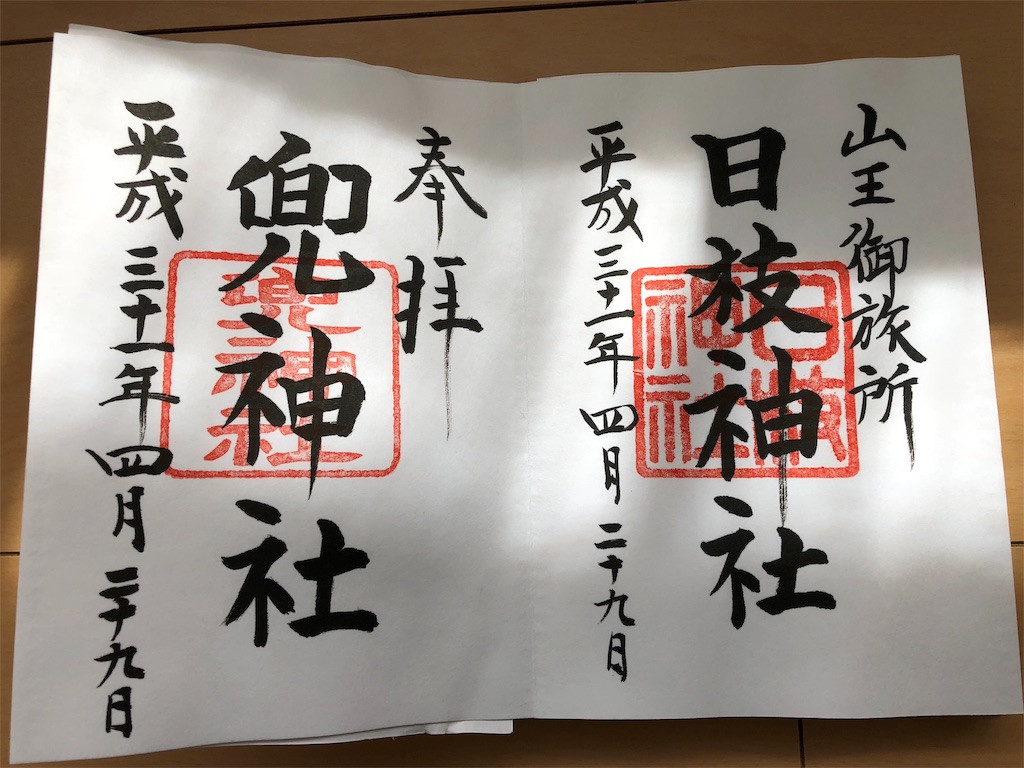 山王御旅所
日枝神社
日枝神社
平成三十一年四月二十九日
奉拝
兜神社
兜神社
平成三十一年四月二十九日